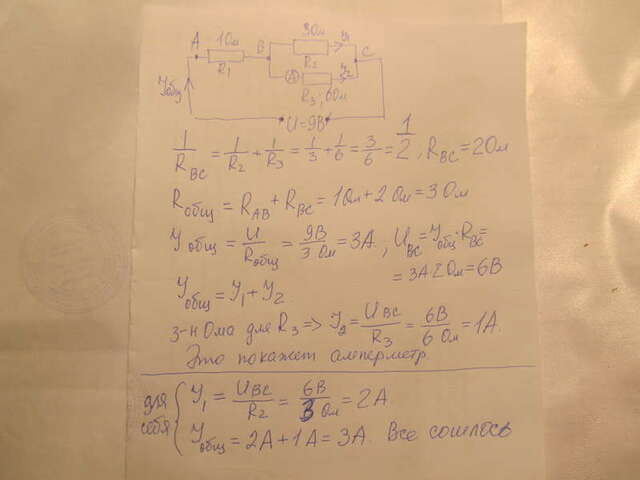 A 1Ом B 3Ом У₁ C
R₁ R₂
А У₂
Уобщ R₃ 6Ом
U=9В
1/R_BC = 1/R₂ + 1/R₃ = 1/3 + 1/6 = 3/6 = 1/2, R_BC = 2Ом
Rобщ = R_AB + R_BC = 1Ом + 2Ом = 3Ом
Уобщ = U/Rобщ = 9В/3Ом = 3А, U_BC = Уобщ·R_BC =
= 3А 2Ом = 6В
Уобщ = У₁ + У₂
З-н Ома для R₃ => У₂ = U_BC/R₃ = 6В/6Ом = 1А.
Это покажет амперметр
для себя { У₁ = U_BC/R₂ = 6В/3Ом = 2А
Уобщ = 2А + 1А = 3А. Все сошлось